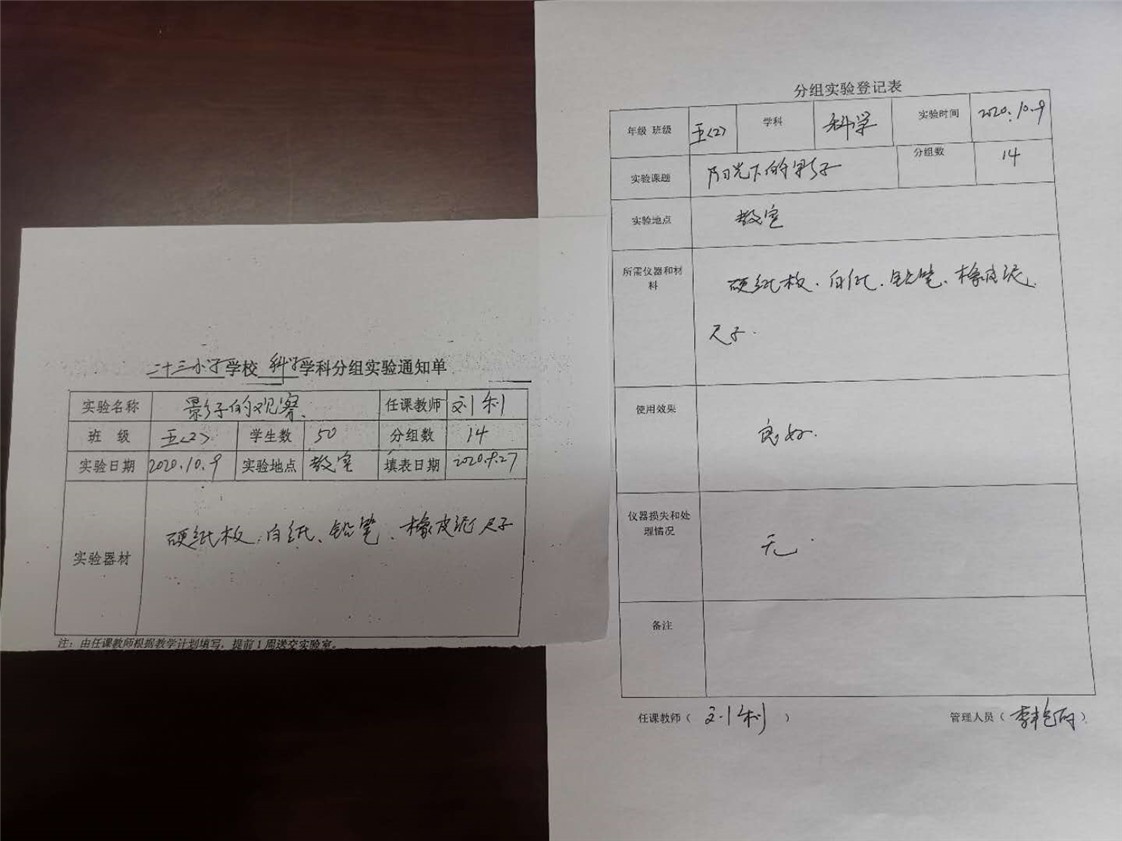 二十三小学学校 科学学科分组实验通知单
实验名称 影子的观察 任课教师 刘利
班 级 五<2> 学生数 50 分组数 14
实验日期 2020.10.9 实验地点 教室 填表日期 2020.9.27
实验器材 硬纸板、白纸、铅笔、橡皮泥 尺子
注：由任课教师根据教学计划填写，提前1周送交实验室。
分组实验登记表
年级 班级 五<2> 学科 科学 实验时间 2020.10.9
实验课题 阳光下的影子 分组数 14
实验地点 教室
所需仪器和材
料
硬纸板、白纸、铅笔、橡皮泥、
尺子.
使用效果 良好.
仪器损失和处
理情况
无.
备注
任课教师（ 刘利 ） 管理人员（ ）